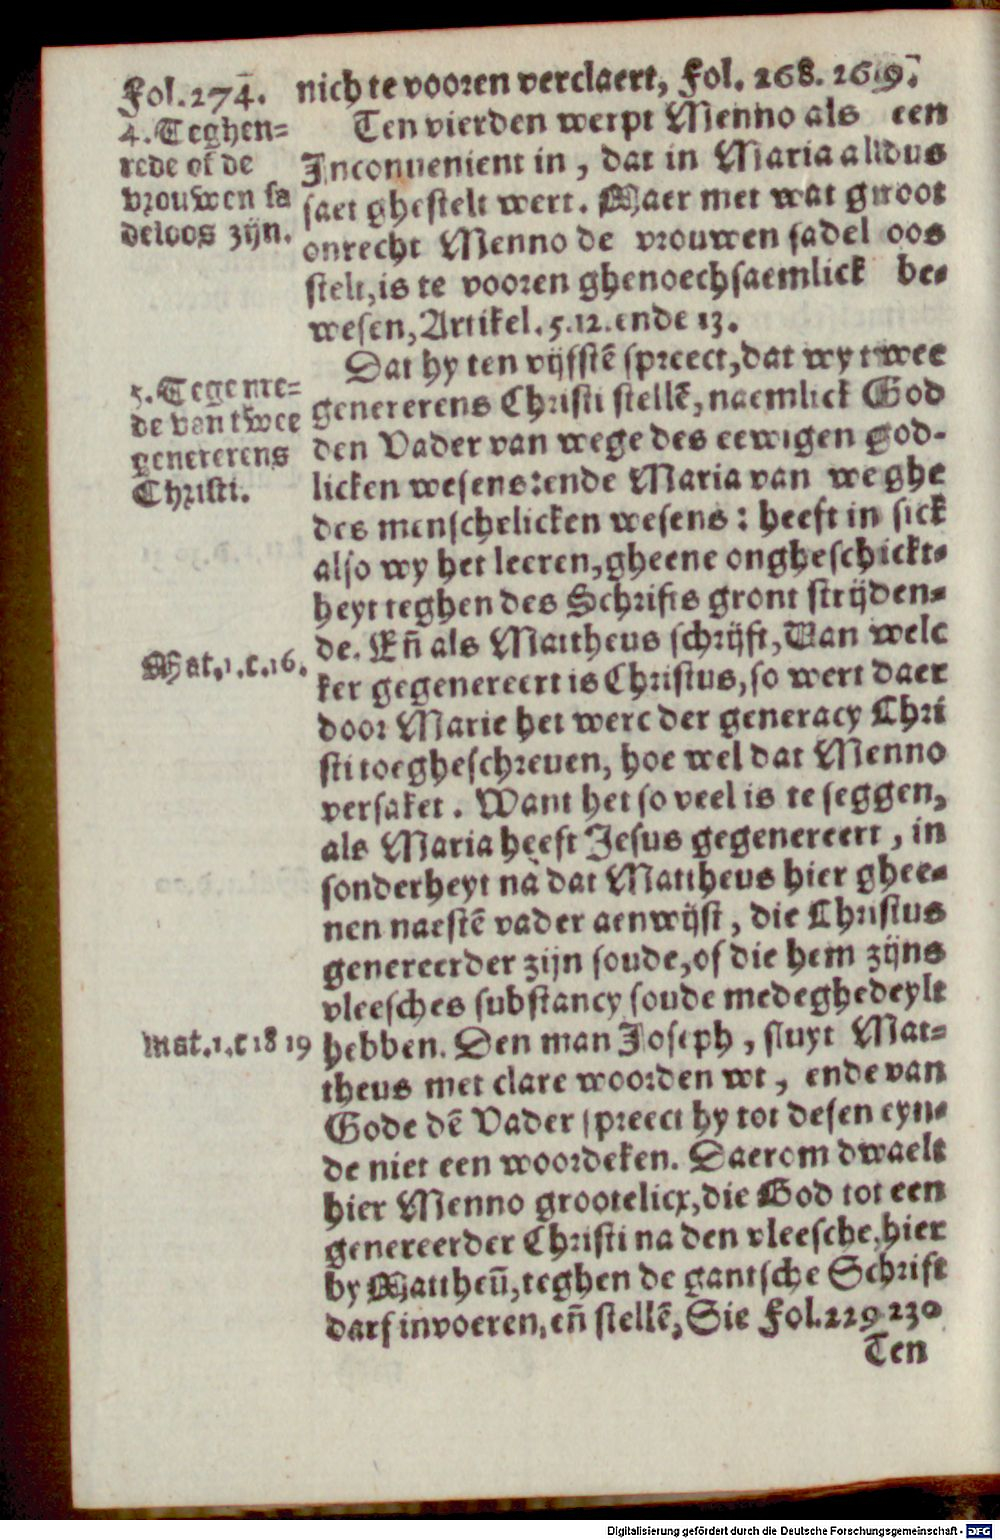 Fol. 274. nich te vooren verclaert, Fol. 268. 269.
4. Teghen=
rede of de
vrouwen sa
deloos zijn.
Ten vierden werpt Menno als een
Inconuenient in, dat in Maria aldus
saet ghestelt wert. Maer met wat groot
onrecht Menno de vrouwen sadel oos
stelt, is te vooren ghenoechsaemlick be=
wesen, Artikel. 5. 12. ende 13.
5. Tegenre=
de van twee
genererens
Christi.
Dat hy ten vijfstē spreect, dat wy twee
genererens Christi stellē, naemlick God
den Vader van wege des eewigen god-
licken wesens: ende Maria van weghe
des menschelicken wesens: heeft in sick
also wy het leeren, gheene ongheschickt=
heyt teghen des Schrifts gront strijden=
de. Eñ als Mattheus schrijft, Van welc
Mat. 1. c. 16.
ker gegenereert is Christus, so wert daer
door Marie het werc der generacy Chri
sti toegheschreuen, hoe wel dat Menno
versaket. Want het so veel is te seggen,
als Maria heeft Jesus gegenereert, in
sonderheyt na dat Mattheus hier ghee=
nen naestē vader aenwijst, die Christus
genereerder zijn soude, of die hem zijns
vleesches substancy soude medeghedeylt
Mat. 1. c 18 19
hebben. Den man Joseph, sluyt Mat=
theus met clare woorden wt, ende van
Gode dē Vader spreect hy tot desen eyn=
de niet een woordeken. Daerom dwaelt
hier Menno grootelicx, die God tot een
genereerder Christi na den vleesche, hier
by Mattheū, teghen de gantsche Schrift
darf invoeren, eñ stellē, Sie Fol. 229 230
Ten
Digitalisierung gefördert durch die Deutsche Forschungsgemeinschaft - DFG